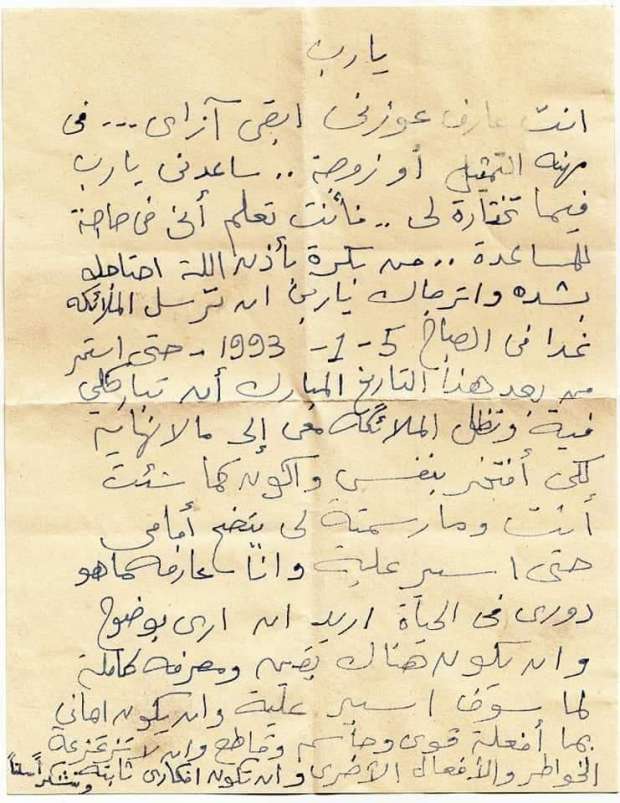 يارب
انت عارف عوزنى ابقى آزاى ... فى
مهنه التمثيل أو زوجة .. ساعدنى يارب
فيما تختارة لى .. فأنت تعلم أنى فى حاجة
للمساعدة .. من بكرة بأذن اللة احتاجه
بشده واترجاك يارب ان ترسل الملائكه
غدا فى الصباح 5 - 1 - 1993 - حتى استمر
من بعد هذا التاريخ المبارك أن تباركلي
فية وتظل الملائكه معى إلى مالانهاية
لكى أفتخر بنفسى واكون كما شئت
أنت وما رسمتة لى يتضح أمامى
حتى اسير علية وانا عارفه ماهو
دورى فى الحياة اريد ان ارى بوضوح
وان يكون هناك يقين ومعرفه كاملة
لما سوف اسير علية وان يكون اماني
بما أفعلة قوى وحاسم وقاطع وان لا تزعزعة
الخواطر والأفعال الأخرى وان تكون افكارى ثابتة